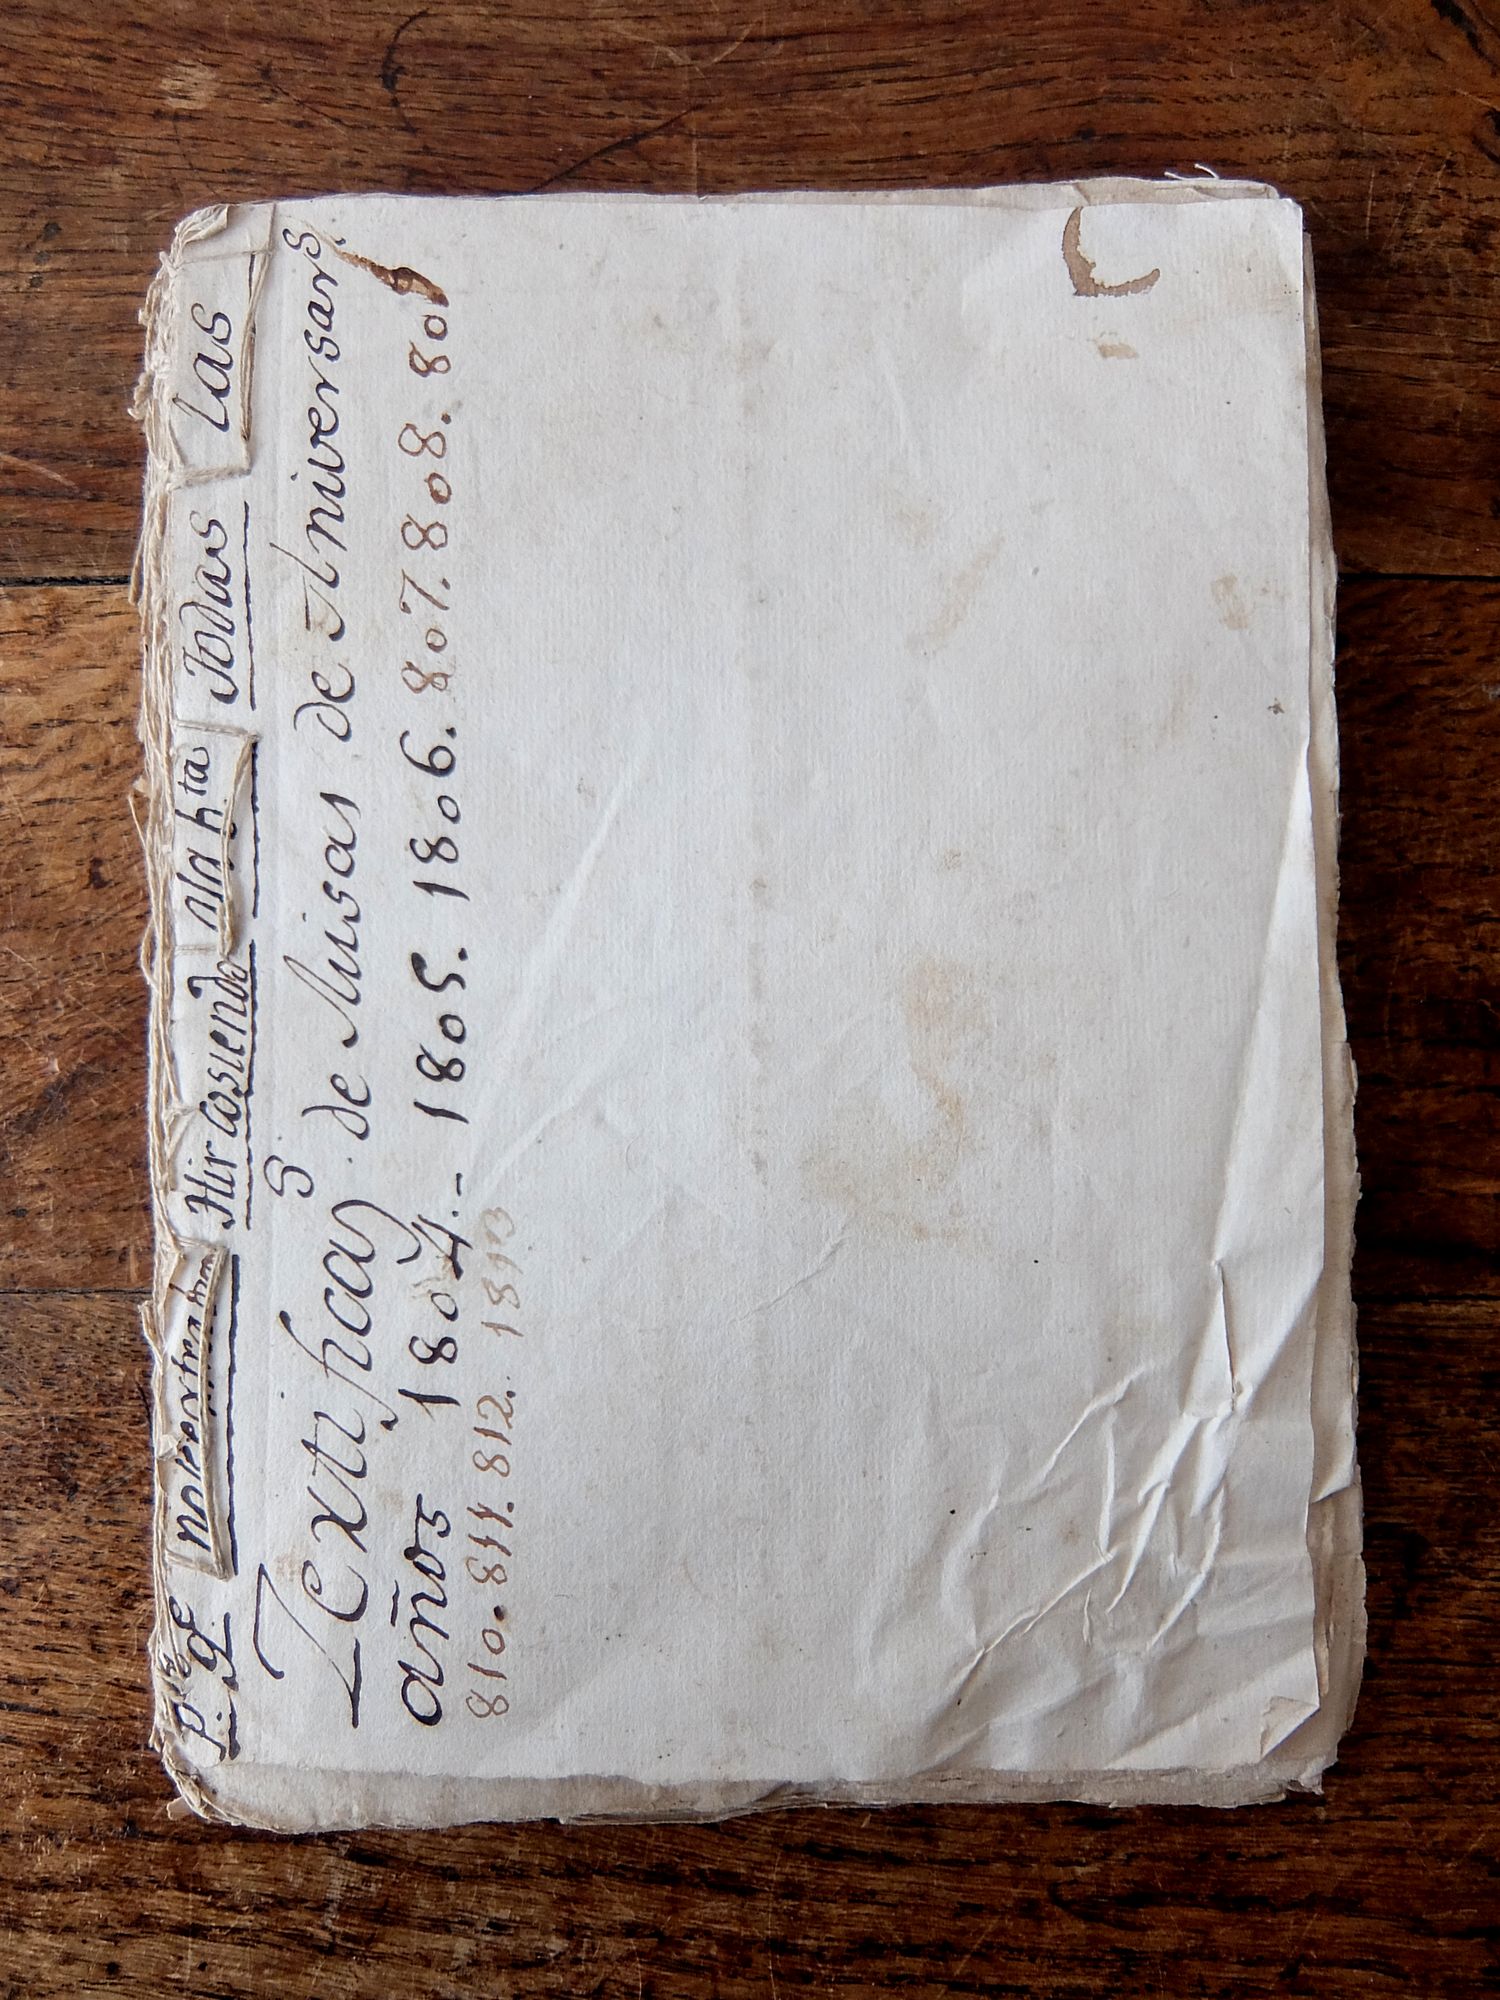 p.r q.e no se pierdan Hir cosiendo a la h.ta Todas las
Textificas.s de Missas de Aniversar.s
años 1804.- 1805. 1806. 807. 808. 809
810. 811. 812. 1813